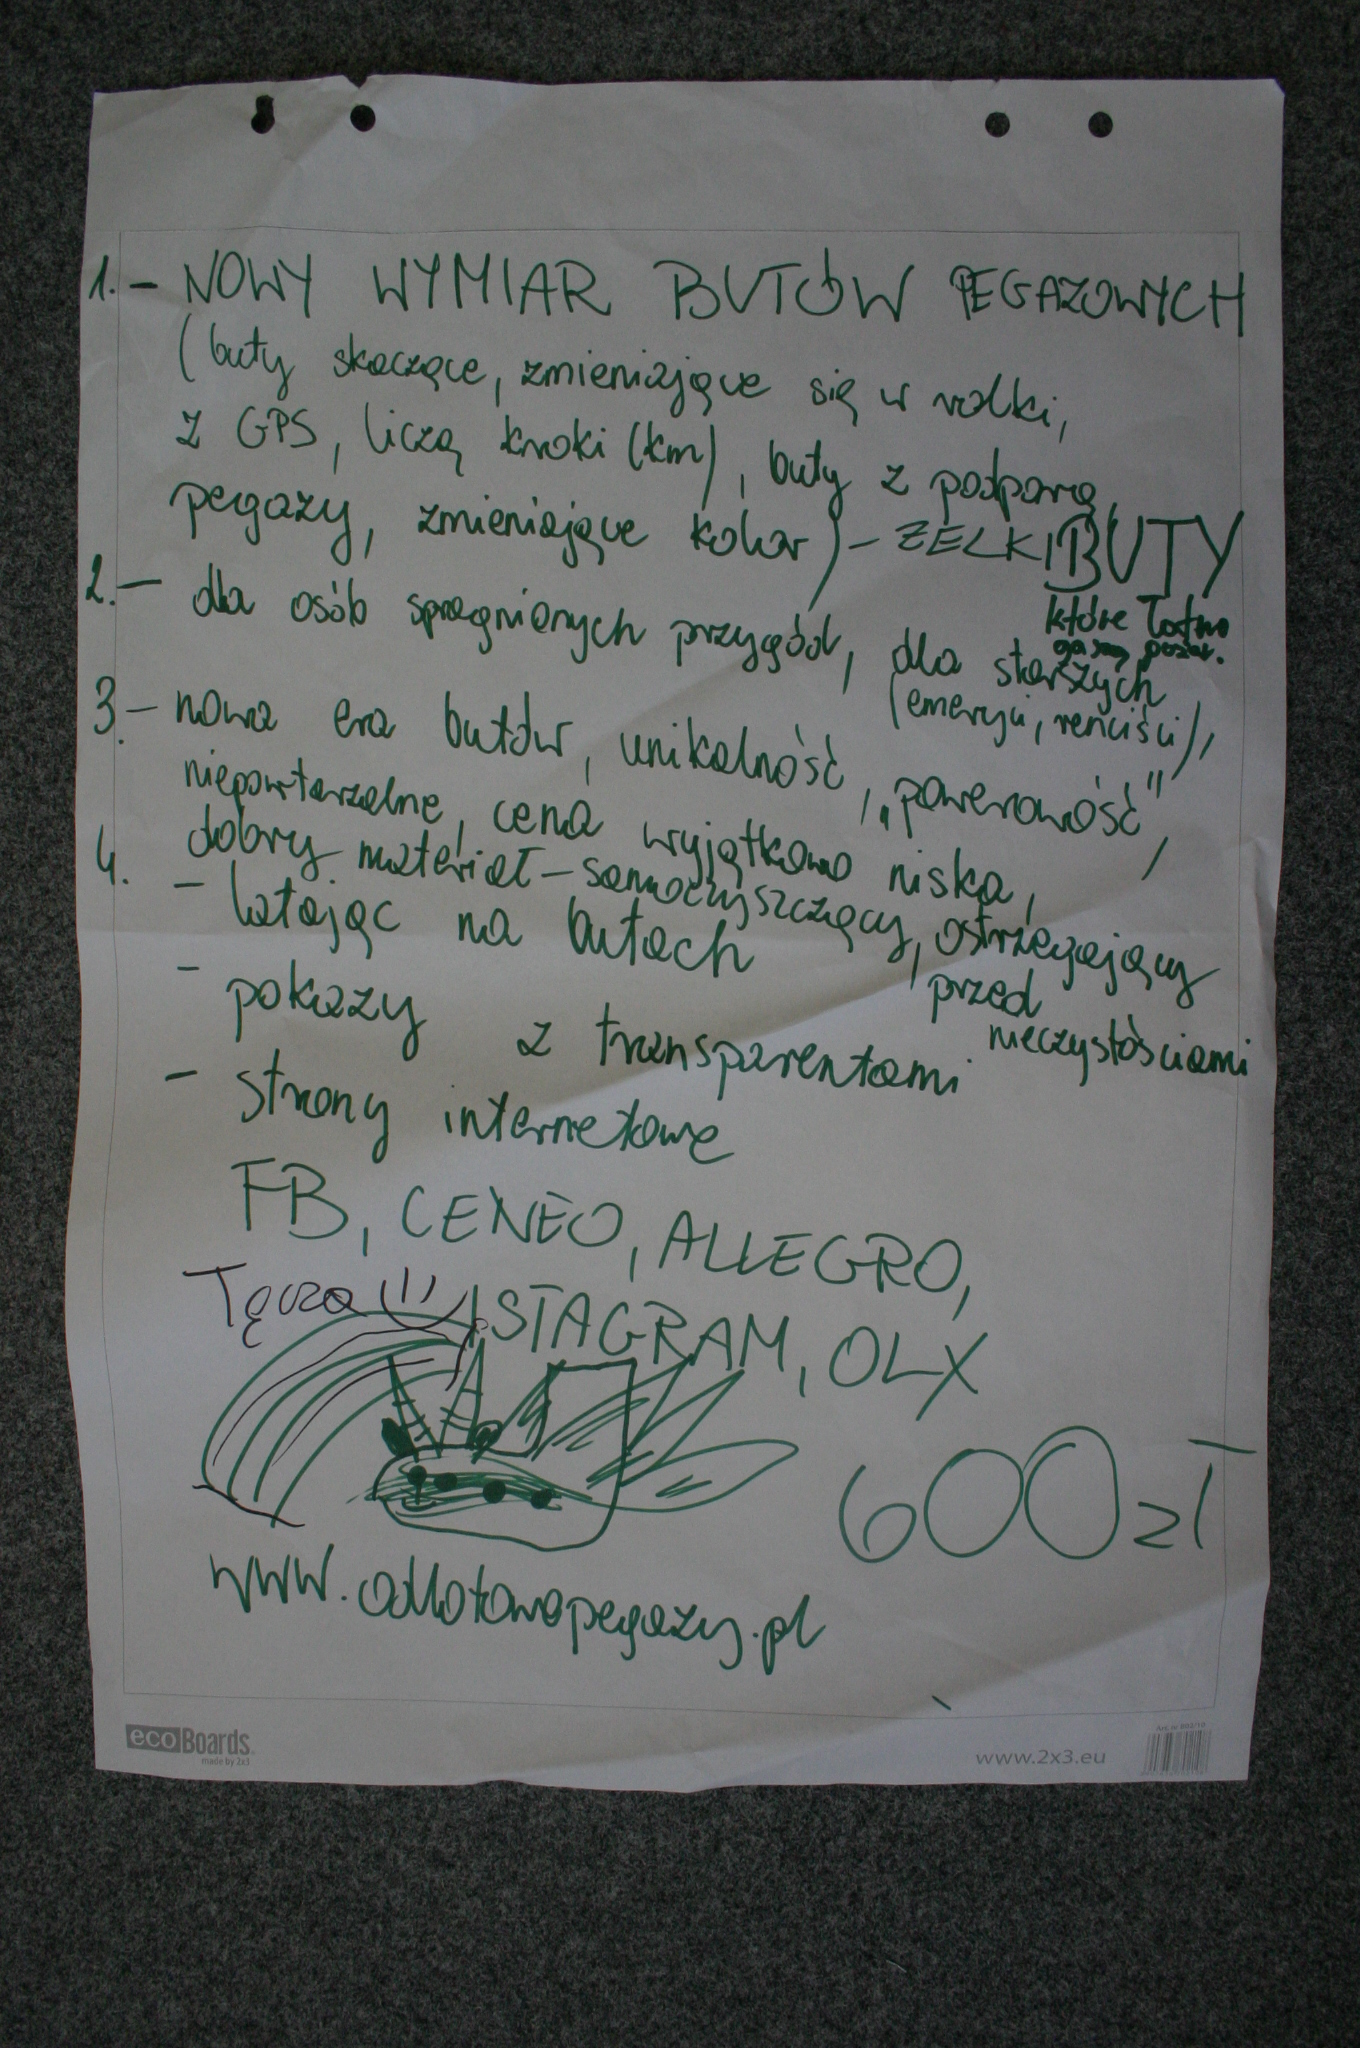 1. – NOWY WYMIAR BUTÓW PEGAZOWYCH
(buty skaczące, zmieniające się w rolki,
z GPS, liczą kroki (km), buty z podporą
pegazy, zmieniające kolor) – ŻELKIBUTY
które łatwo
gaszą pożar.
2. – dla osób spragnionych przygód, dla starszych
(emeryci, renciści),
3. – nowa era butów, unikalność, „powerowość",
niepowtarzalne, cena wyjątkowo niska,
dobry materiał – samoczyszczący, ostrzegający
przed
nieczystościami
4. – latając na butach
– pokazy z transparentami
– strony internetowe
FB, CENEO, ALLEGRO,
ISTAGRAM, OLX
Tęcza
600 zł
www.odlotowepegazy.pl
ecoBoards
made by 2x3
www.2x3.eu